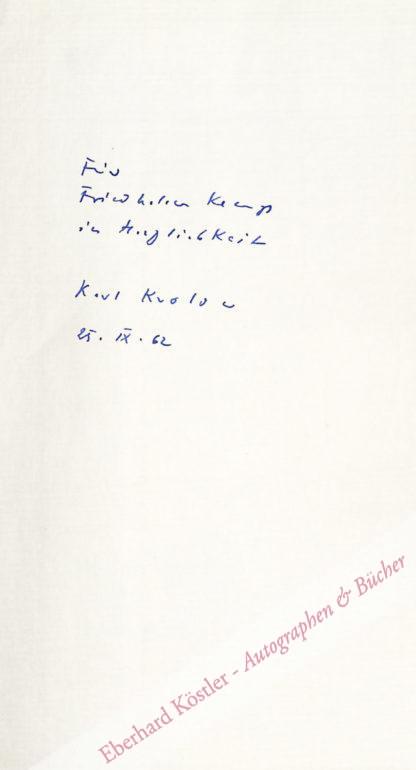 Für
Friedhelm Kemp
in Herzlichkeit
Karl Krolow
25. IX. 62
Eberhard Köstler - Autographen & Bücher